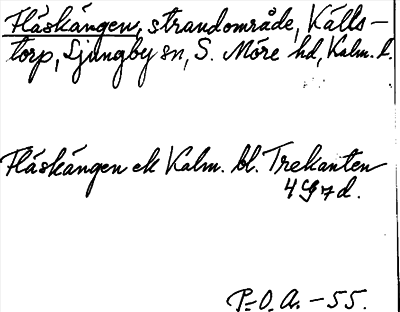 Fläskängen, strandområde, Källs-
torp, Ljungby sn, S. Möre hd, Kalm. l.
Fläskängen ek Kalm. bl. Trekanten
4 G 7 d.
P.O.A. - 55.